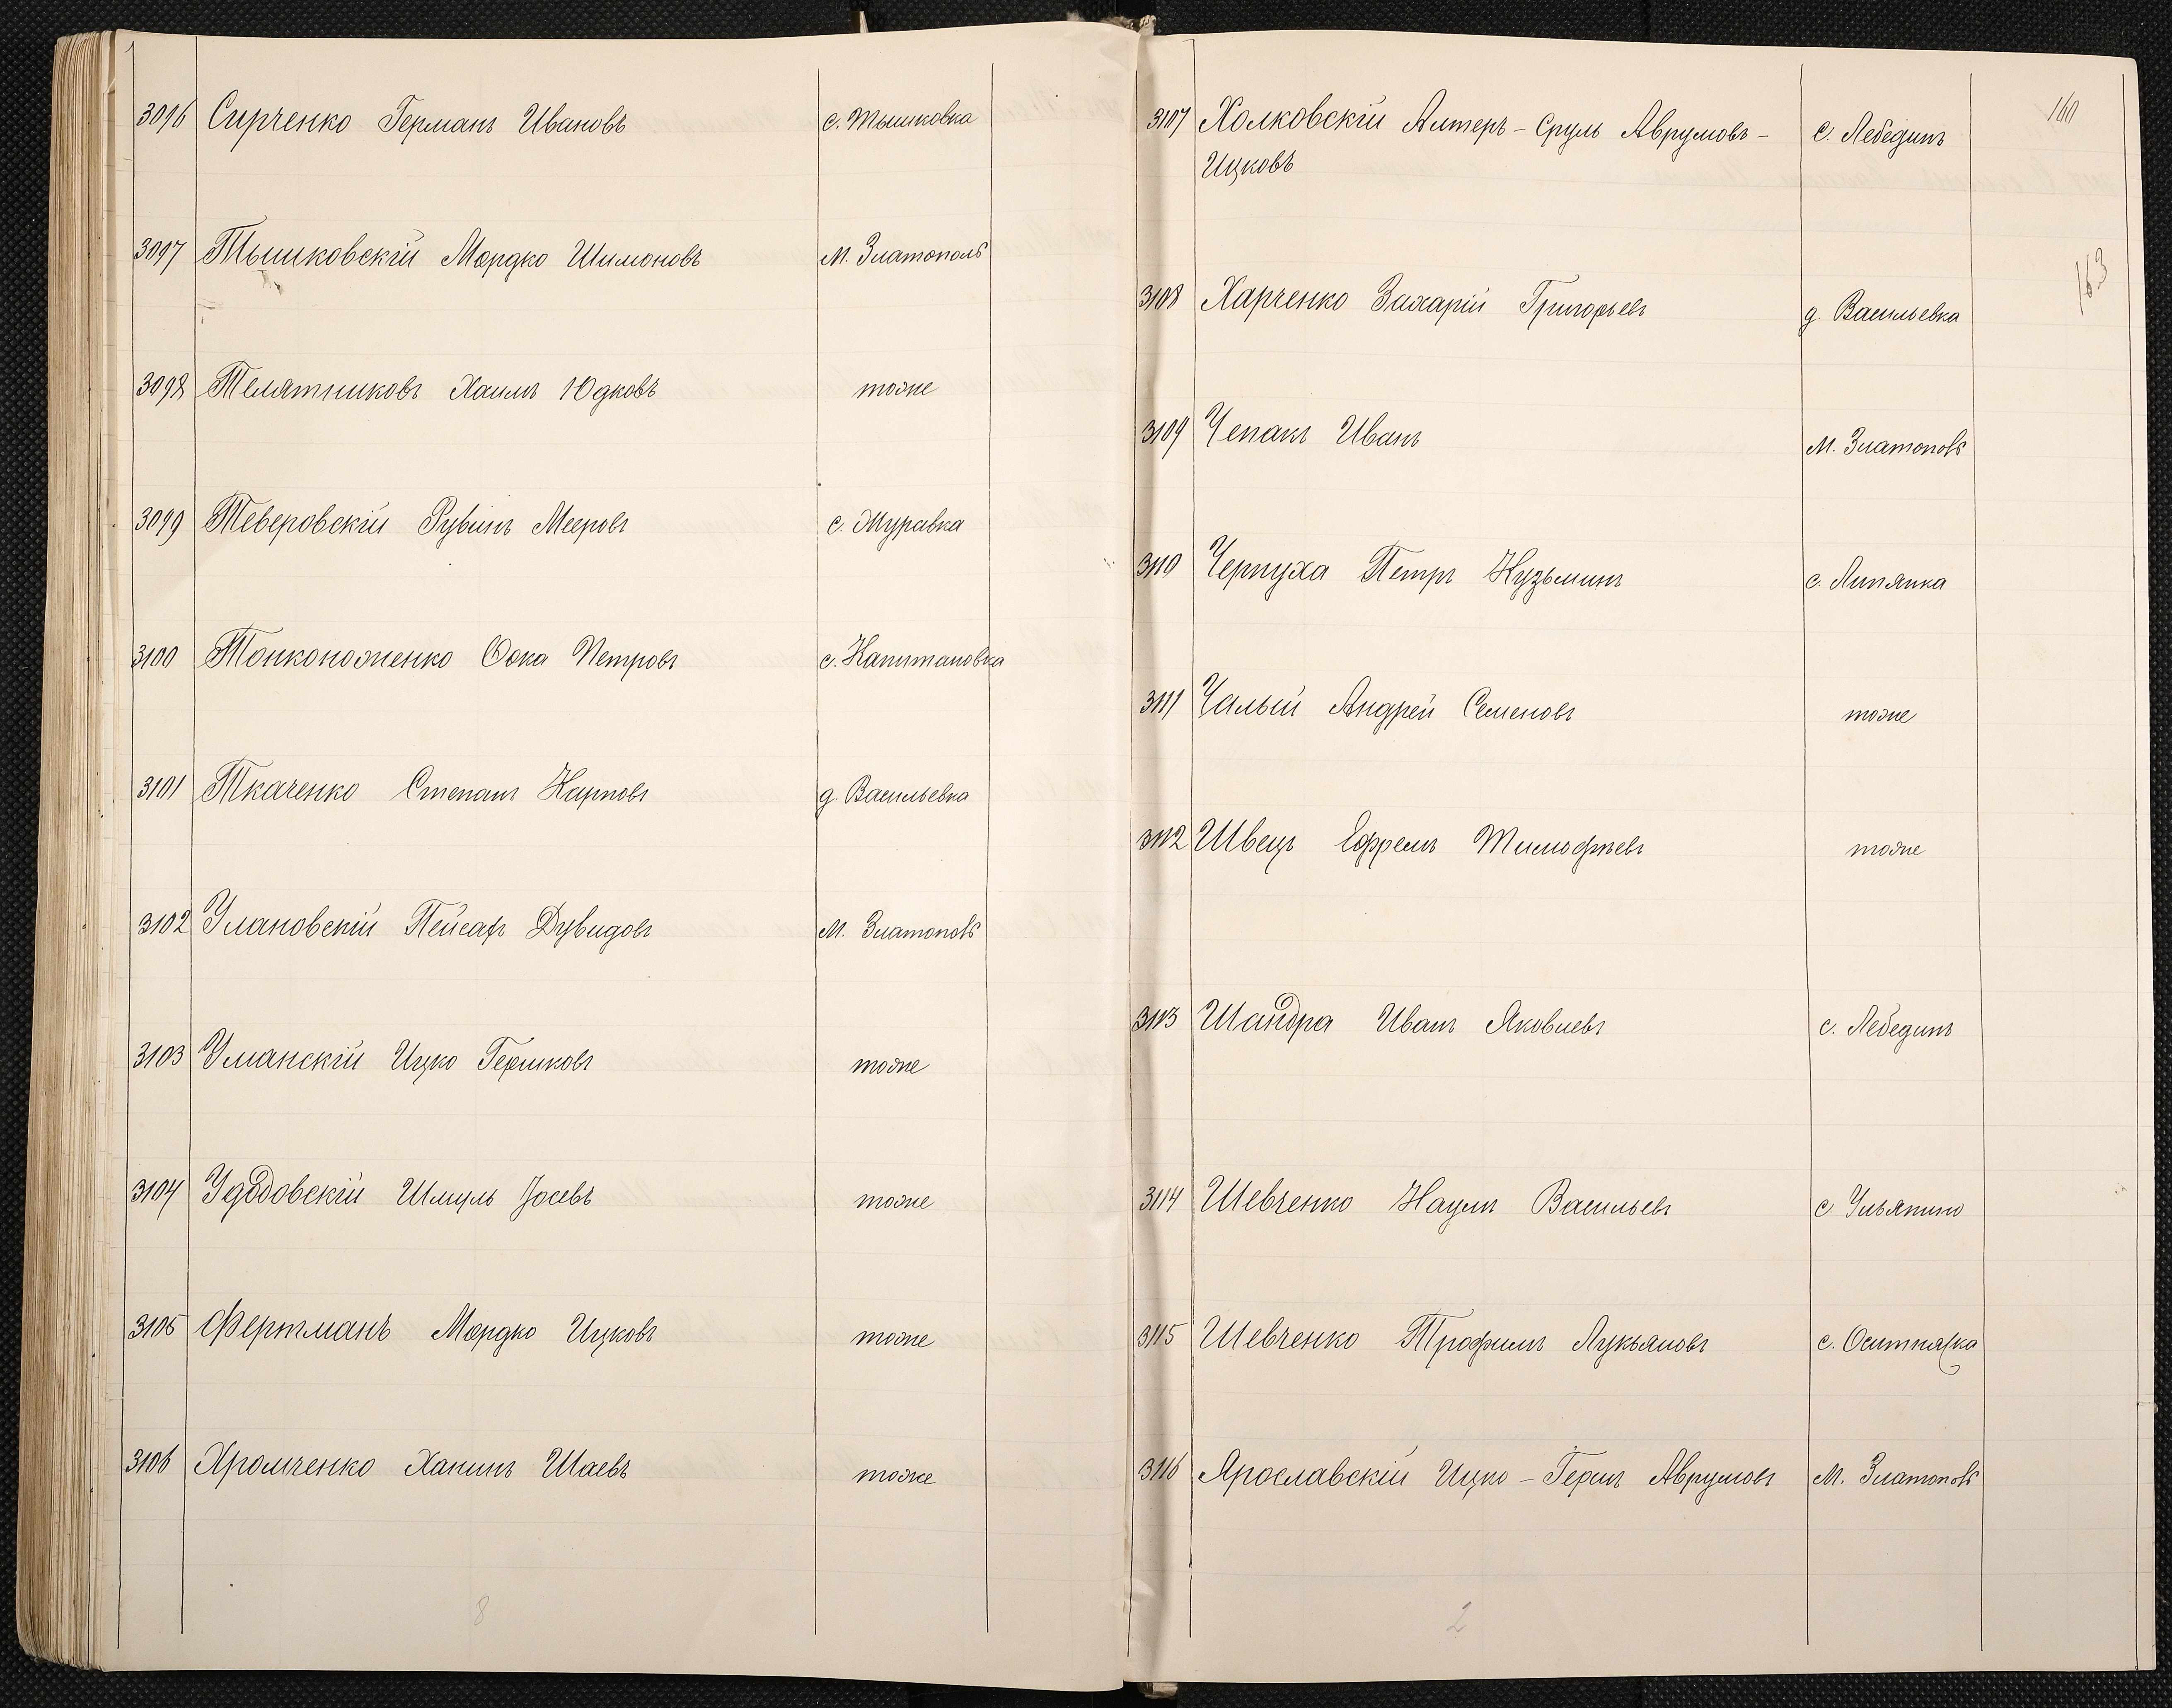 3096 Сирченко Германъ Ивановъ с. Тышковка
3097 Тышковскій Мордко Шимоновъ м. Златополь
3098 Телятниковъ Хаимъ Юдковъ тоже
3099 Теверовскій Рувинъ Мееровъ с. Журавка
3100 Тонконоженко Фока Петровъ с. Капитановка
3101 Ткаченко Степанъ Карповъ д. Васильевка
3102 Улановскій Пейсахъ Дувидовъ м. Златополь
3103 Уманскій Ицко Гершковъ тоже
3104 Удодовскій Шмуль Іосевъ тоже
3105 Фертманъ Мордко Ицковъ тоже
3106 Хромченко Ханинъ Шаевъ тоже
8
160
3107 Холковскій Алтеръ-Сруль Аврумовъ- с. Лебединъ
Ицковъ
163
3108 Харченко Захарій Григорьевъ д. Васильевка
3109 Чепакъ Иванъ м. Златополь
3110 Черпуха Петръ Кузьминъ с. Липянка
3111 Чалый Андрей Семеновъ тоже
3112 Швецъ Ефремъ Тимофѣевъ тоже
3113 Шандра Иванъ Яковлевъ с. Лебединъ
3114 Шевченко Наумъ Васильевъ с. Ульянино
3115 Шевченко Трофимъ Лукьяновъ с. Оситняжка
3116 Ярославскій Ицко-Гершъ Аврумовъ м. Златополь
2